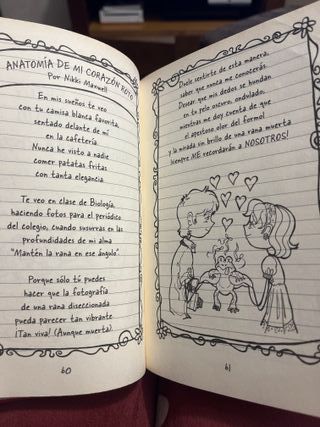 ANATOMÍA DE MI CORAZÓN ROTO
Por Nikki Maxwell
En mis sueños te veo
con tu camisa blanca favorita,
sentado delante de mí
en la cafetería.
Nunca he visto a nadie
comer patatas fritas
con tanta elegancia.
Te veo en clase de Biología,
haciendo fotos para el periódico
del colegio, cuando susurras en las
profundidades de mi alma
"Mantén la rana en ese ángulo".
Porque sólo tú puedes
hacer que la fotografía
de una rana diseccionada
pueda parecer tan vibrante.
¡Tan viva! (Aunque muerta).
60
Duele sentirte de esta manera,
saber que nunca me conocerás.
Desear que mis dedos se hundan
en tu pelo oscuro, ondulado,
mientras me doy cuenta de que
el apestoso olor del formol
y la mirada sin brillo de una rana muerta
¡siempre ME recordarán a NOSOTROS!
61